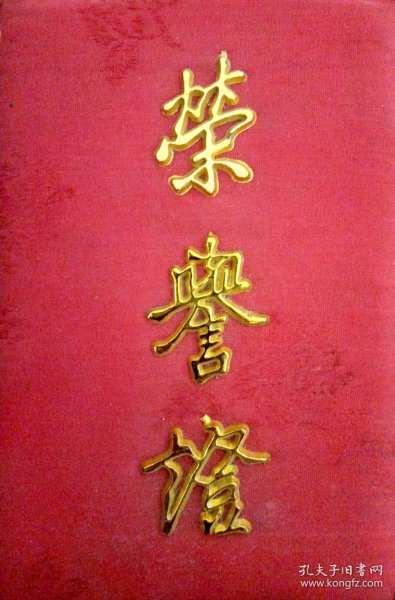 榮
譽
證
孔夫子旧书网
www.kongfz.com